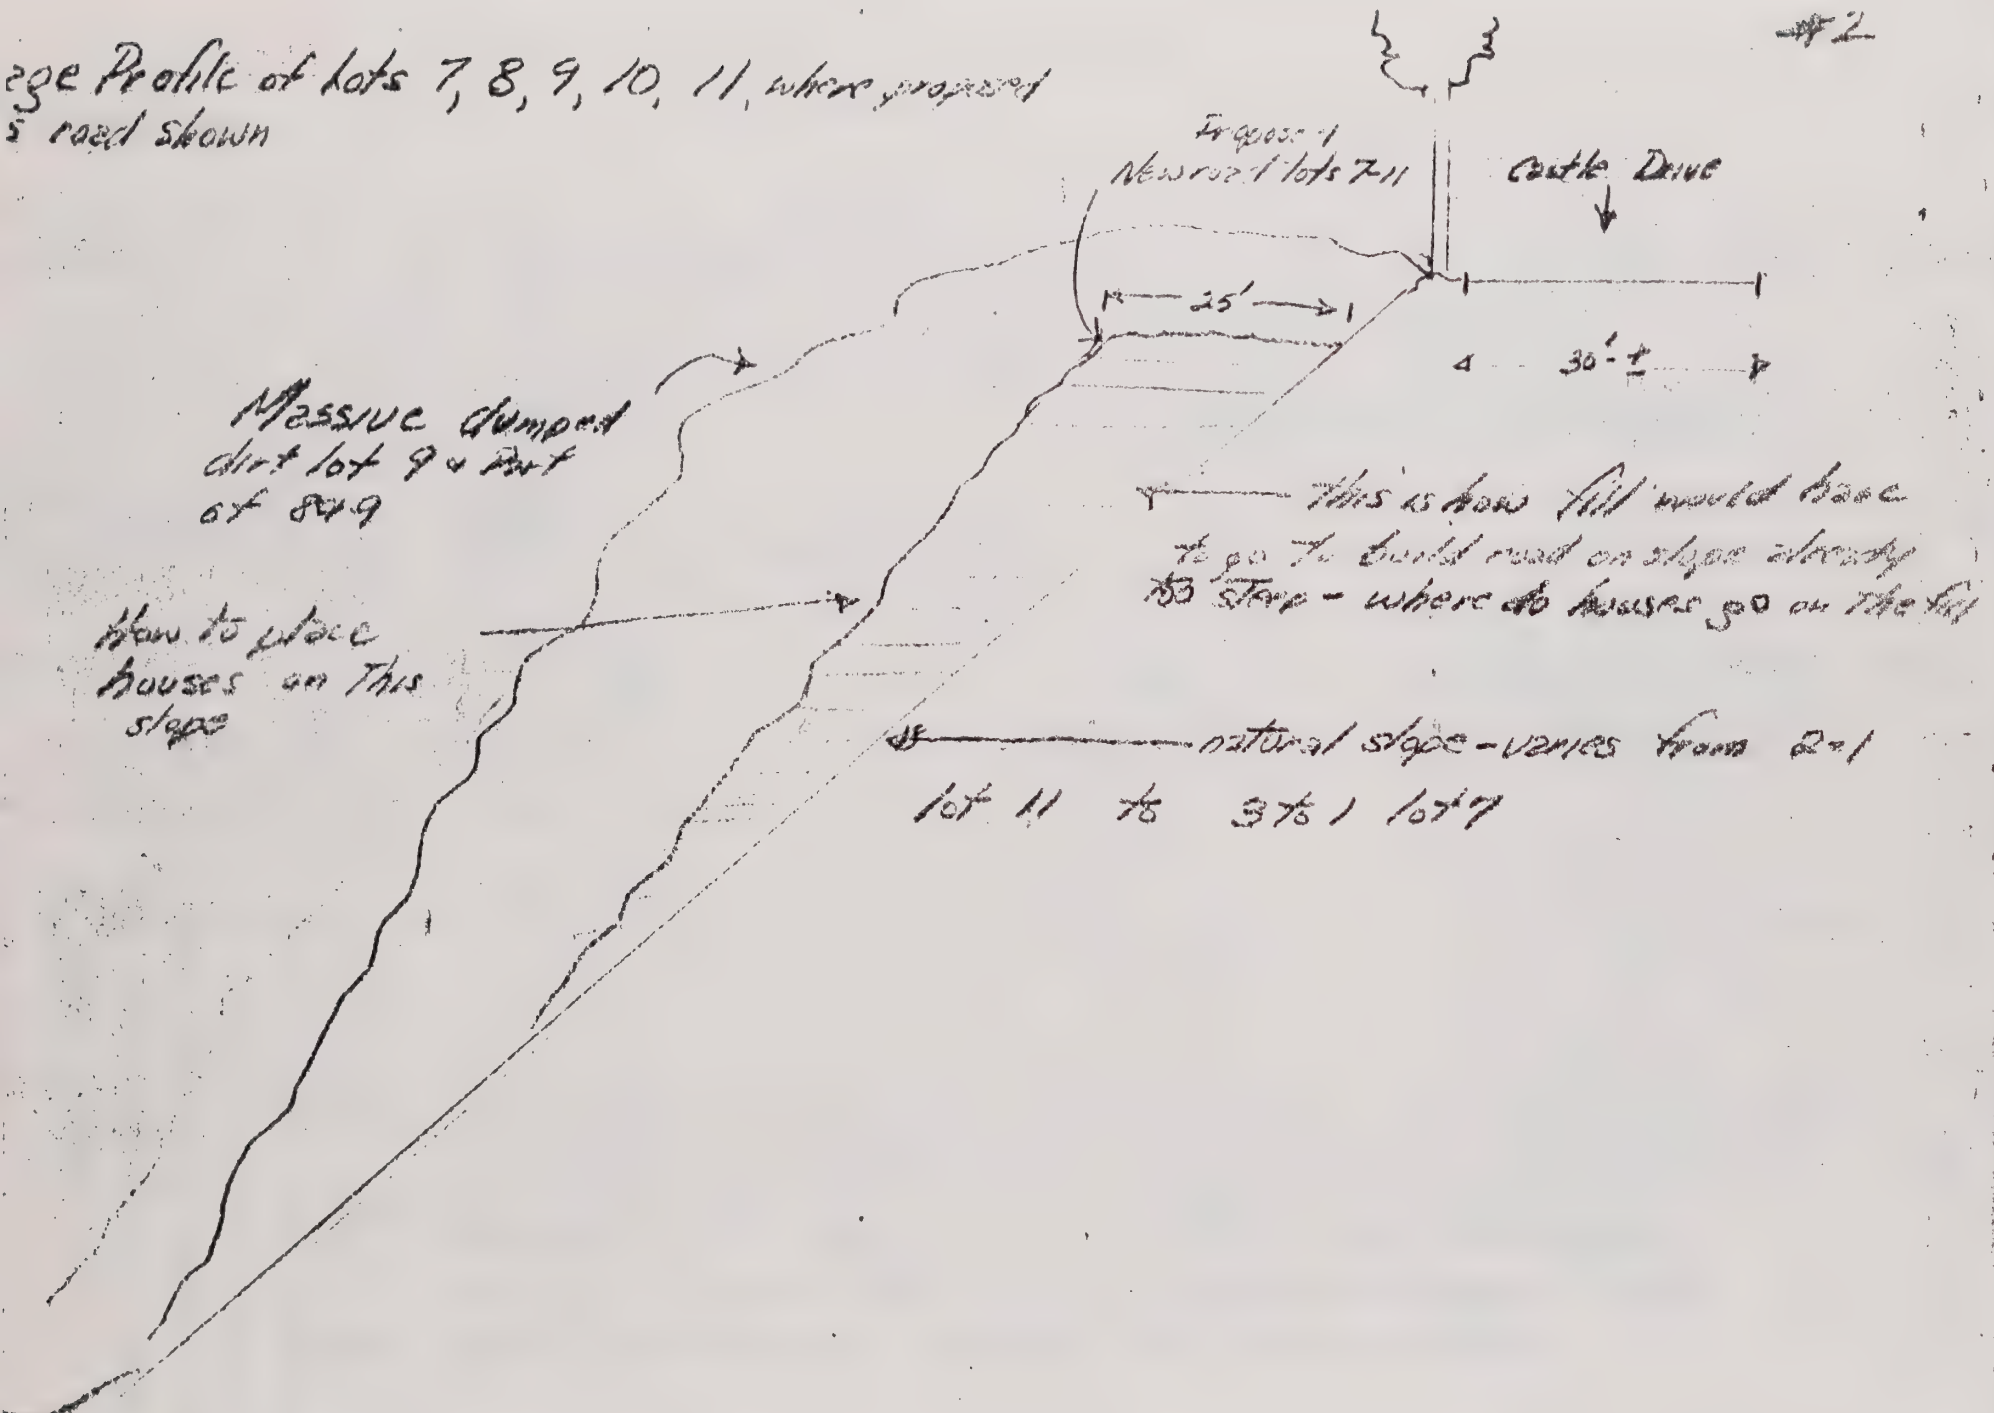 #2
ege Profile of Lots 7, 8, 9, 10, 11, where proposed
s road shown
Propose d
New road lots 7-11
Castle Drive
25'
30' ±
Massive dumped
dirt lot 9 & Part
of 8&9
This is how fill would have
to go to build road on slope already
too steep - where do houses go on The fill
How to place
houses on This
slope
natural slope - varies from 2-1
lot 11 to 3 to 1 lot 7